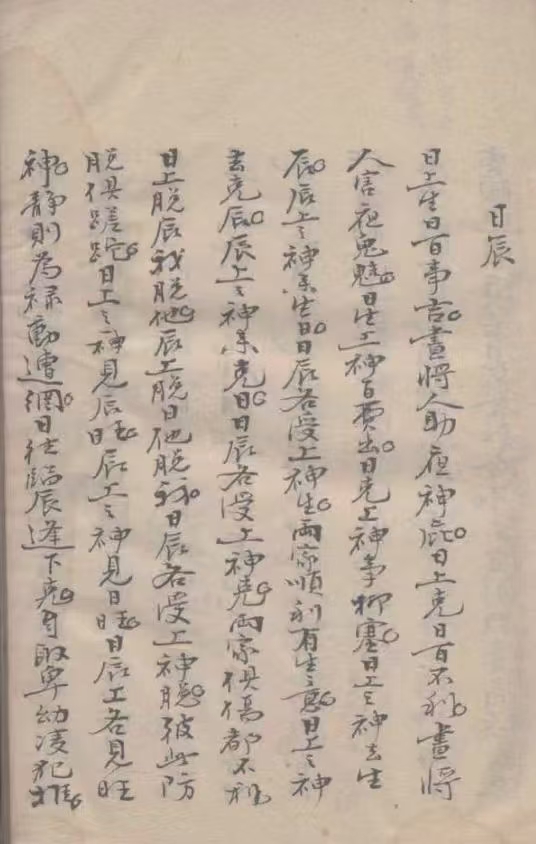 日辰
日上生日百事吉晝將人助夜神庇日上克日百不利晝將
人害夜鬼魅日生上神百費出日克上神事抑塞日上之神去生
辰辰上之神來生日日辰各受上神生兩家順利有生意日上之神
去克辰辰上之神來克日日辰各受上神克兩家俱傷都不利
日上脫辰我脫他辰上脫日他脫我日辰各受上神脫彼此防
脫俱蹉跎日上之神見辰旺辰上之神見日旺日辰上各見旺
神靜則為祿動遭網日往臨辰逢下克自取卑幼凌犯推